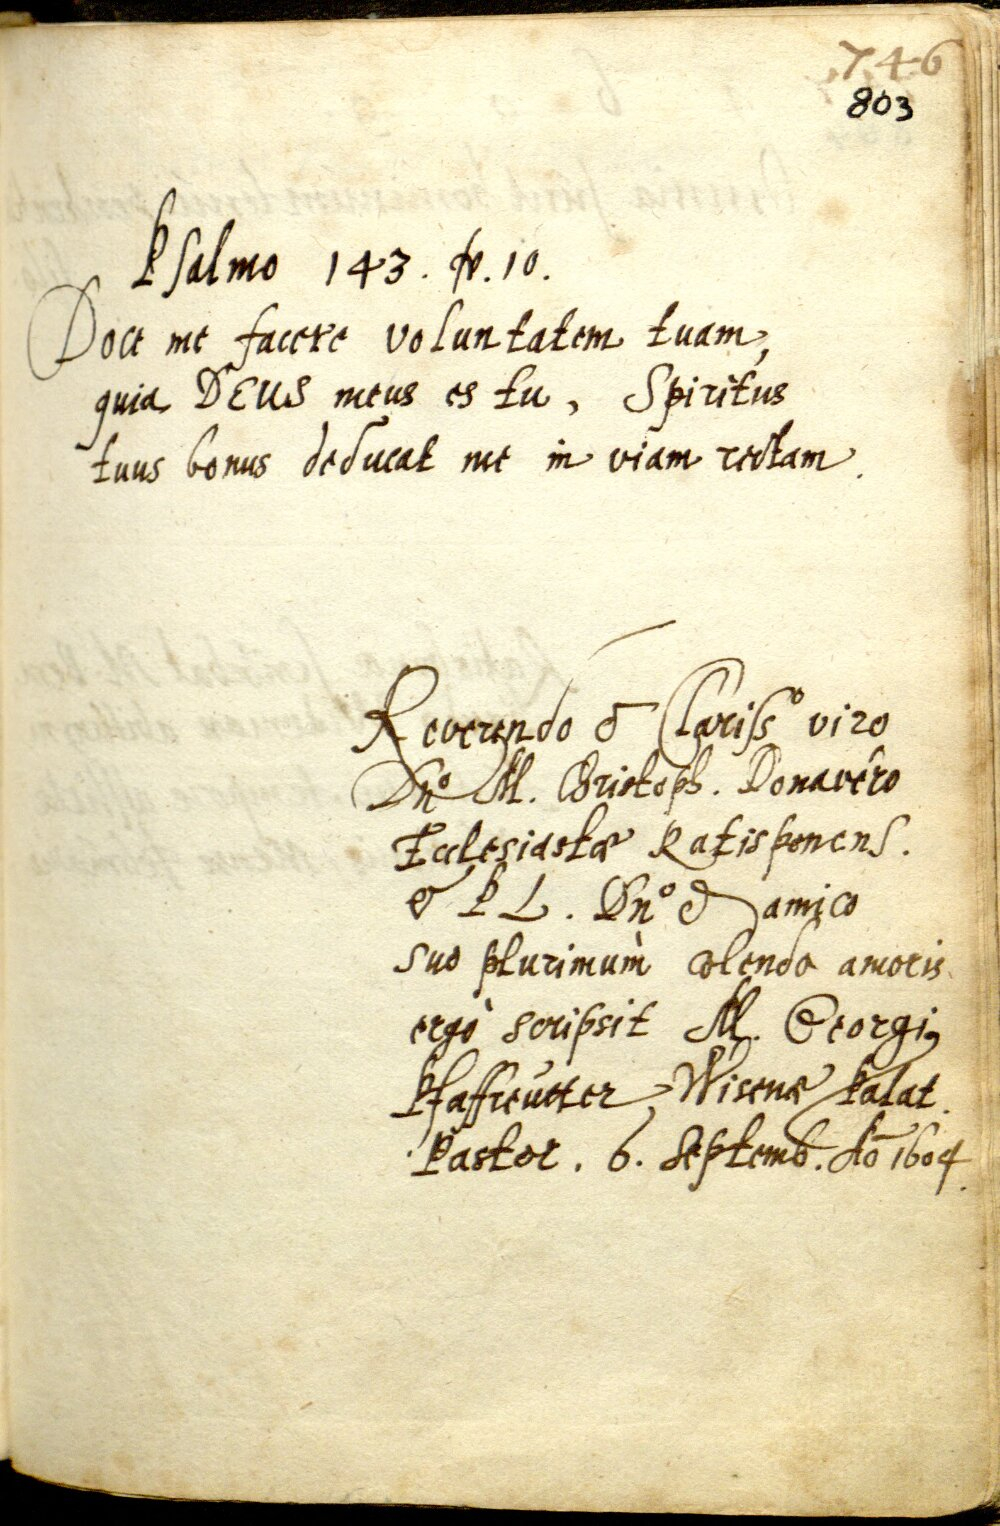 746
803
Psalmo 143. V. 10.
Doce me facere voluntatem tuam,
quia DEUS meus es tu, Spiritus
tuus bonus deducat me in viam rectam.
Reverendo & Clariss° viro
Dn° M. Christoph. Donavero
Ecclesiastæ Ratisponens.
& P L. Dn° & amico
suo plurimum̀ colendo amoris
ergò scripsit M. Georgi9
Pfaffreutter, Wisenæ Palat.
Pastor. 6. Septemb. Ao 1604.